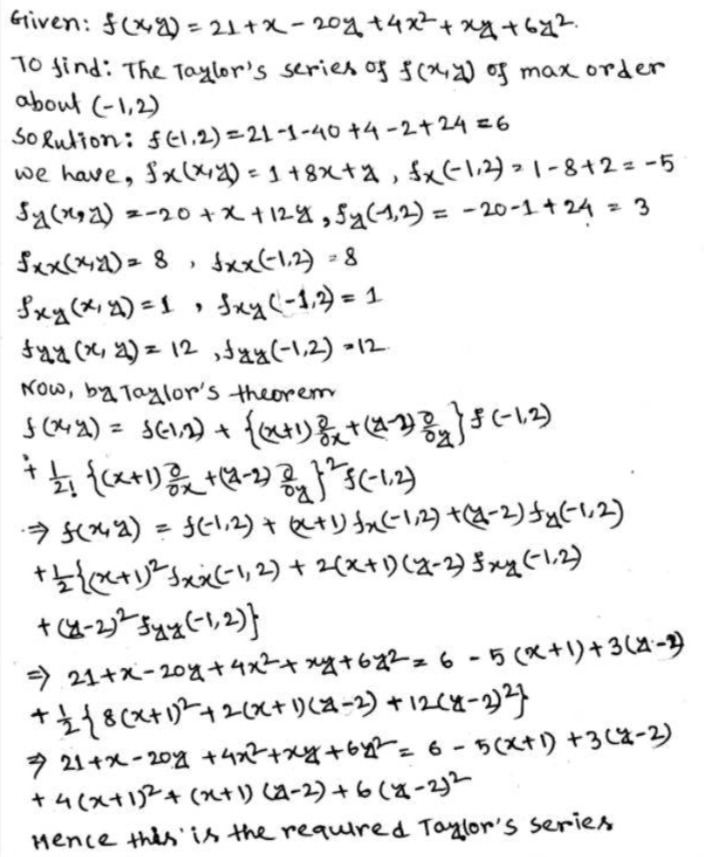 Given: f(x,y) = 21+x-20y+4x²+xy+6y².
To find: The Taylor's series of f(x,y) of max order
about (-1,2)
Solution: f(-1,2) = 21-1-40+4-2+24 = 6
we have, fx(x,y) = 1+8x+y, fx(-1,2) = 1-8+2 = -5
fy(x,y) = -20+x+12y, fy(-1,2) = -20-1+24 = 3
fxx(x,y) = 8, fxx(-1,2) = 8
fxy(x,y) = 1, fxy(-1,2) = 1
fyy(x,y) = 12, fyy(-1,2) = 12.
Now, by Taylor's theorem
f(x,y) = f(-1,2) + {(x+1)∂/∂x + (y-2)∂/∂y} f(-1,2)
+ 1/2! {(x+1)∂/∂x + (y-2)∂/∂y}² f(-1,2)
⇒ f(x,y) = f(-1,2) + (x+1) fx(-1,2) + (y-2) fy(-1,2)
+ 1/2 {(x+1)² fxx(-1,2) + 2(x+1)(y-2) fxy(-1,2)
+ (y-2)² fyy(-1,2)}
⇒ 21+x-20y+4x²+xy+6y² = 6 - 5(x+1) + 3(y-2)
+ 1/2 {8(x+1)² + 2(x+1)(y-2) + 12(y-2)²}
⇒ 21+x-20y+4x²+xy+6y² = 6 - 5(x+1) + 3(y-2)
+ 4(x+1)² + (x+1)(y-2) + 6(y-2)²
Hence this is the required Taylor's series